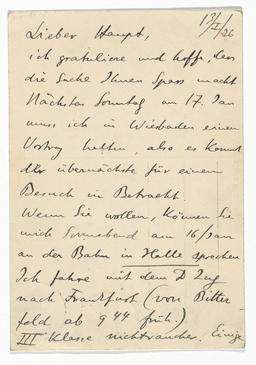 13/I/26
Lieber Haupt,
ich gratuliere und hoffe, dass
die Sache Ihnen Spass macht
Nächsten Sonntag am 17. Jan
muss ich in Wiesbaden einen
Vortrag halten, also es kommt
der übernächste für einen
Besuch in Betracht.
Wenn Sie wollen, können Sie
mich Sonnabend am 16/Jan
an der Bahn in Halle sprechen.
Ich fahre mit dem D Zug
nach Frankfurt (von Bitter-
feld ab 9 44 früh.)
III Klasse nichtraucher. Einige